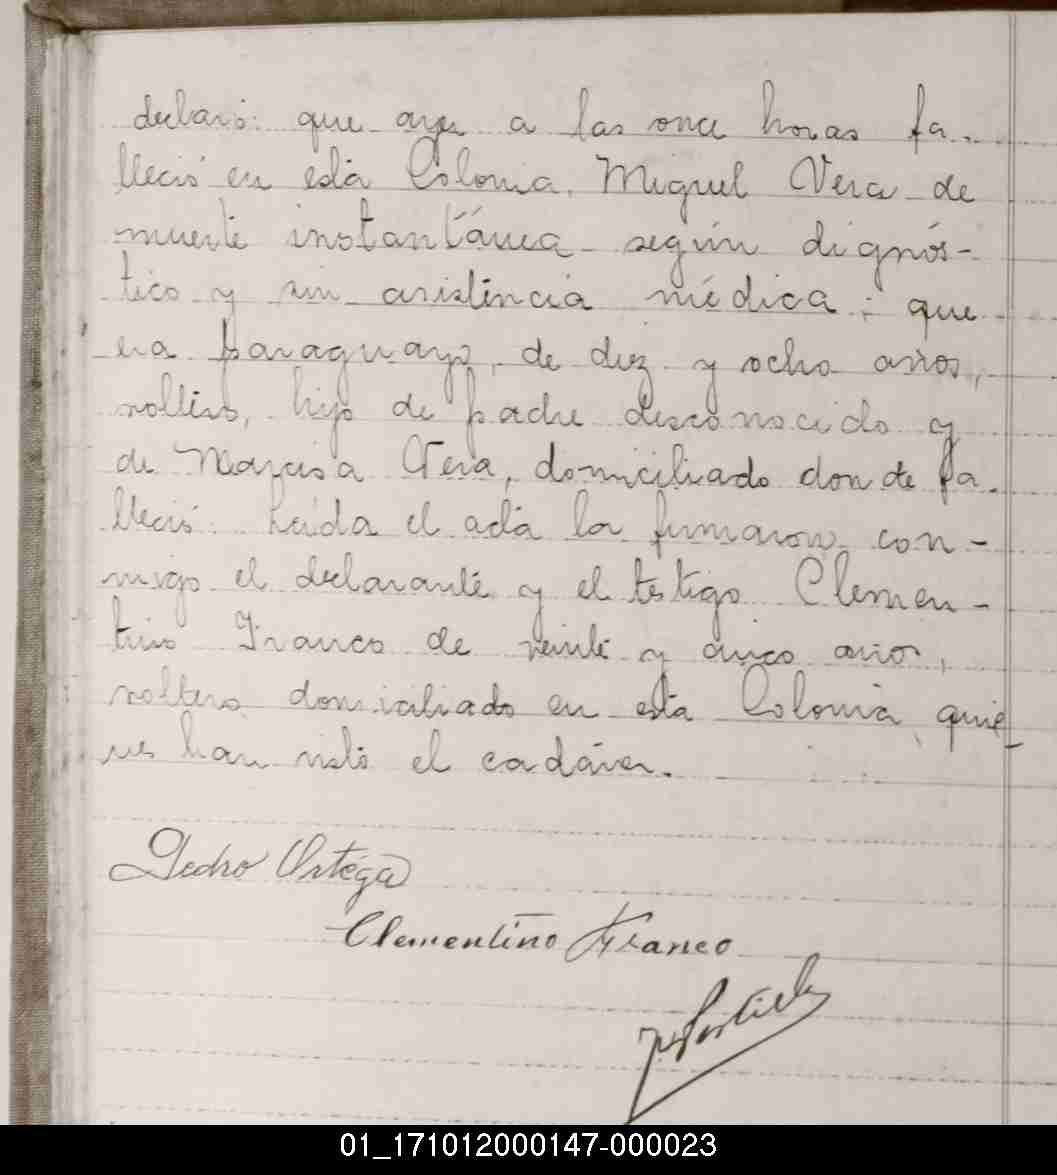 declaró: que ayer a las once horas fa-
lleció en esta Colonia, Miguel Vera de
muerte instantánea según dignós-
tico y sin asistencia médica; que
era paraguayo, de diez y ocho años,
soltero, hijo de padre desconocido y
de Narcisa Vera, domiciliado donde fa-
lleció. Leida el acta la firmaron con-
migo el declarante y el testigo Clemen-
tino Franco de veinte y cinco años,
soltero domiciliado en esta Colonia, quie-
nes han visto el cadáver.
Pedro Ortega
Clementino Franco
01_171012000147-000023